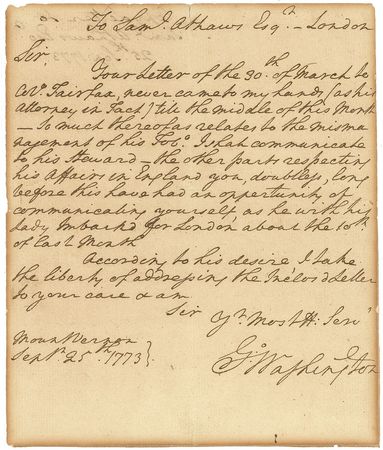 To Saml. Athaws Esqr. – London
Sir.
Your Letter of the 30th. of March to
Colo. Fairfax, never came to my hands (as his
Attorney in Fact) till the middle of this Month
– so much thereof as relates to the misma
nagement of his Tobo. I shall communicate
to his Steward – the other parts respecting
his Affairs in England you, doubtless, long
before this have had an opportunity of
communicating yourself as he with his
Lady Imbarkd for London about the 10th
of last Month
According to his desire I take
the liberty of addressing the Inclosd Letter
to your care & am
Sir
Yr. Most H: Servt
Go: Washington
Mount Vernon
Septr. 25th. 1773